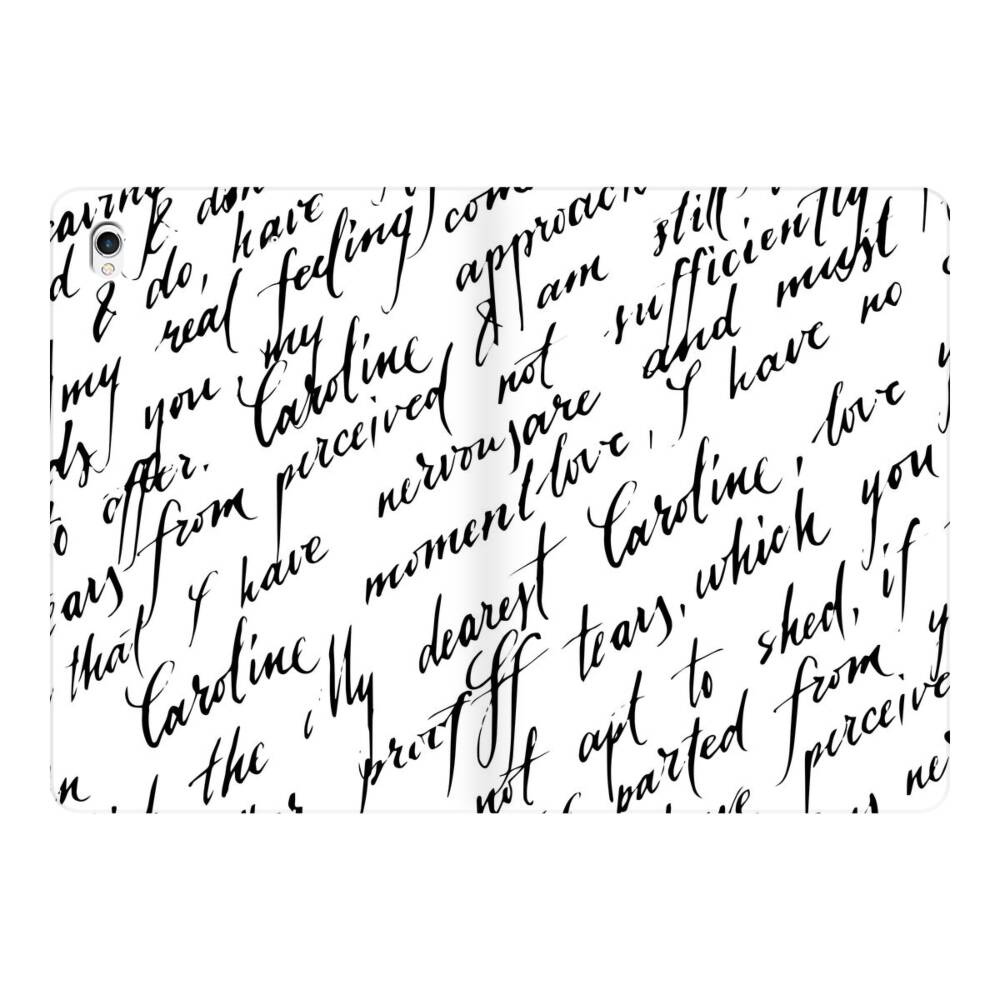 & don
& do, have
real feeling com approach still
my you, my & am sufficiently
ds Caroline not and must
to offer. perceived nervous are I have no
ears from moment love,
that I have dearest Caroline, love
Caroline My tears, which you
the proof off not apt to shed, if
parted from
perceive
ne